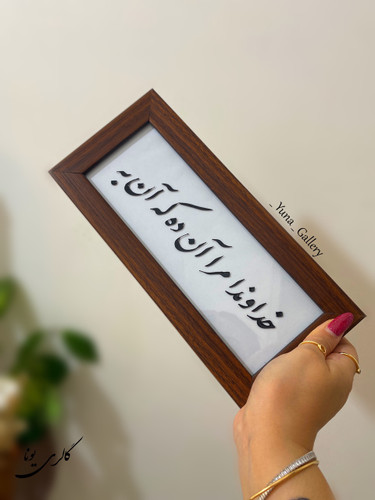 خداوندا مرا آن ده که آن به
_ Yuna _ Gallery
گالری یونا